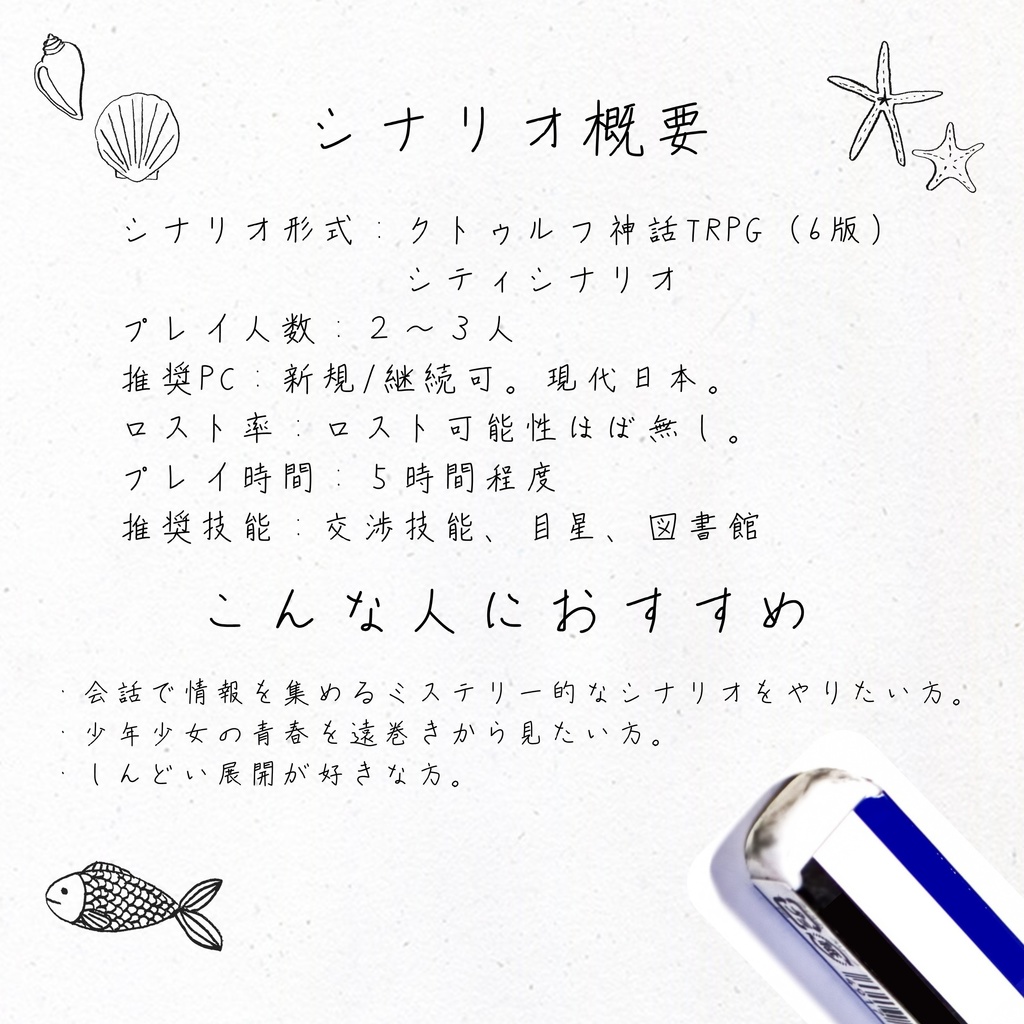 シナリオ概要
シナリオ形式：クトゥルフ神話TRPG（6版）
シティシナリオ
プレイ人数：２～３人
推奨PC：新規/継続可。現代日本。
ロスト率：ロスト可能性ほぼ無し。
プレイ時間：５時間程度
推奨技能：交渉技能、目星、図書館
こんな人におすすめ
・会話で情報を集めるミステリー的なシナリオをやりたい方。
・少年少女の青春を遠巻きから見たい方。
・しんどい展開が好きな方。